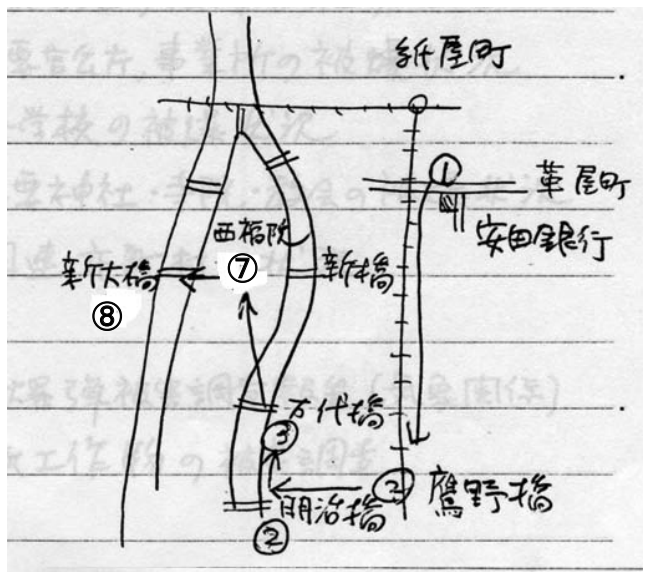 紙屋町
①
革屋町
安田銀行
西福院
⑦
新大橋
新橋
⑧
万代橋
③
②
鷹野橋
明治橋
②